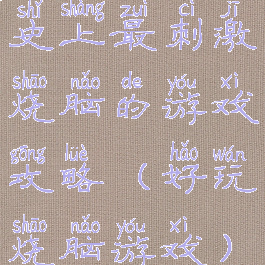 shǐ shàng zuì cì jī
史上最刺激
shāo nǎo de yóu xì
烧脑的游戏
gōng lüè hǎo wán
攻略（好玩
shāo nǎo yóu xì
烧脑游戏）